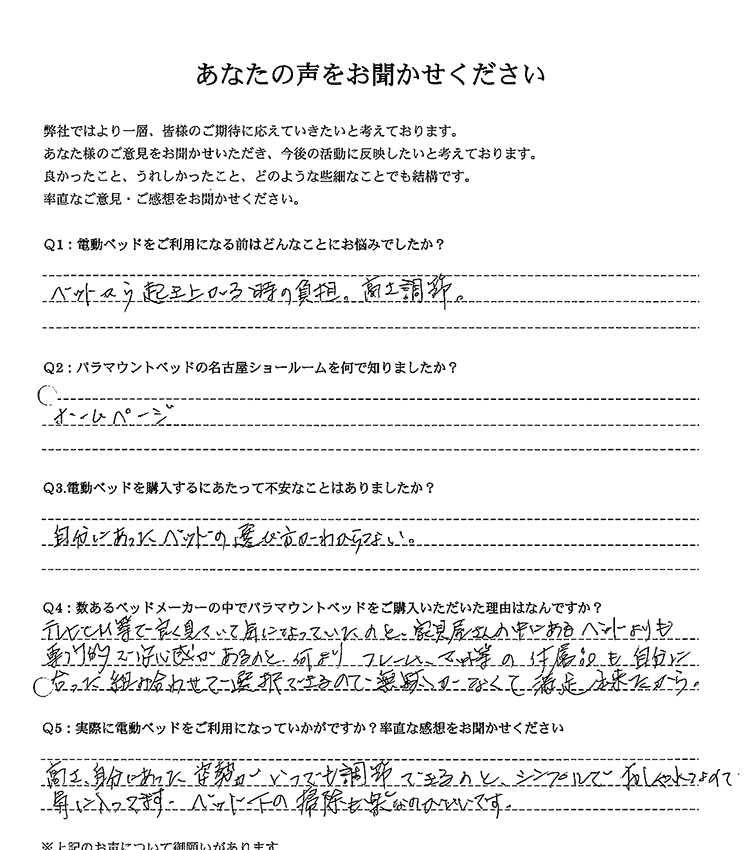 あなたの声をお聞かせください
弊社ではより一層、皆様のご期待に応えていきたいと考えております。
あなた様のご意見をお聞かせいただき、今後の活動に反映したいと考えております。
良かったこと、うれしかったこと、どのような些細なことでも結構です。
率直なご意見・ご感想をお聞かせください。
Q1：電動ベッドをご利用になる前はどんなことにお悩みでしたか？
ベットから起き上がる時の負担。高さ調節。
Q2：パラマウントベッドの名古屋ショールームを何で知りましたか？
ホームページ
Q3.電動ベッドを購入するにあたって不安なことはありましたか？
自分にあったベッドの選び方がわからない。
Q4：数あるベッドメーカーの中でパラマウントベッドをご購入いただいた理由はなんですか？
テレビCM等で良く見ていて気になっていたのと、家具屋さんの中にあるベットよりも
専門的で安心感があるのと、何より フレーム、マット等の付属品も自分に
合った組み合わせで選択できるので無駄がなくて満足出来たから。
Q5：実際に電動ベッドをご利用になっていかがですか？率直な感想をお聞かせください
高さ、自分にあった姿勢がいつでも調節できるのと、シンプルでおしゃれなので
気に入ってます。ベッド下の掃除も楽なのがいいです。
※上記のお声について御願いがあります